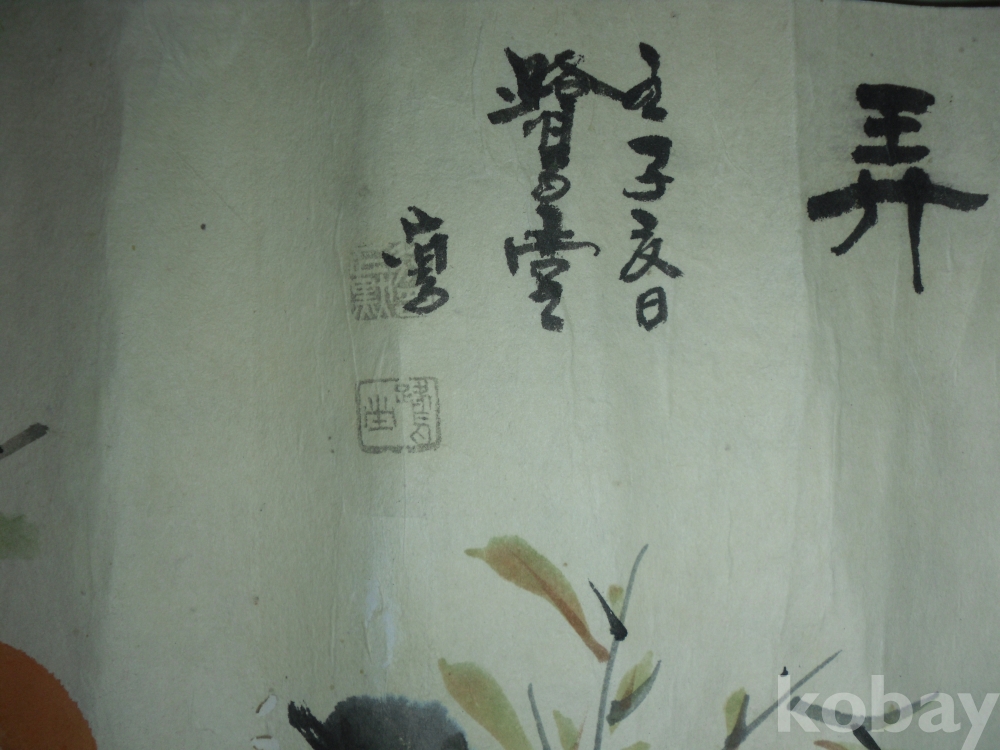 弄
壬子夏日
鷺堂
寫
鷺堂
kobay